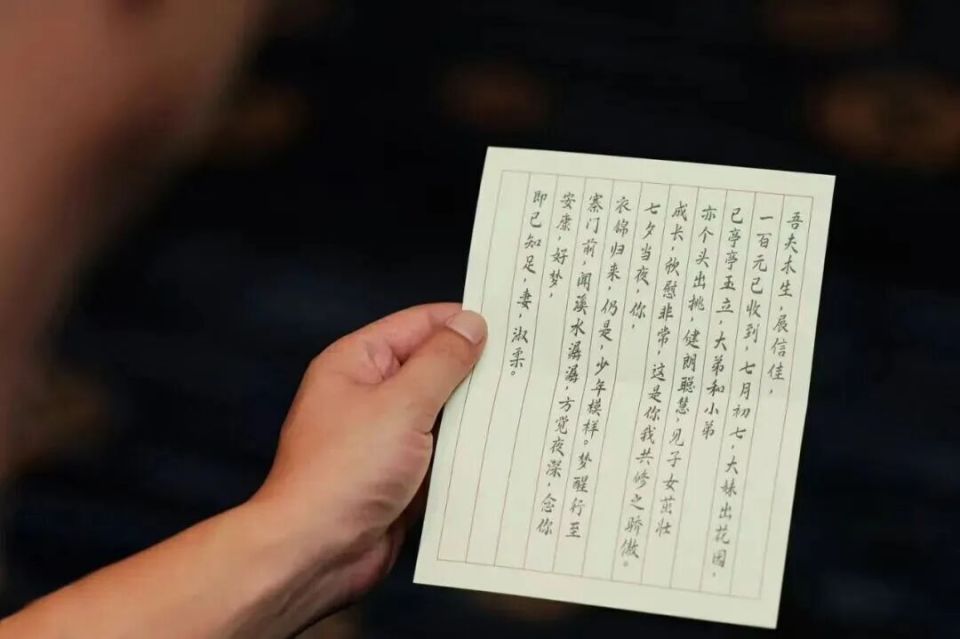 吾夫木生，展信佳，
一百元已收到，七月初七，大妹出花园，
已亭亭玉立，大弟和小弟
亦个头出挑，健朗聪慧，见子女茁壮
成长，欣慰非常，这是你我共修之骄傲。
七夕当夜，你，
衣锦归来，仍是，少年模样。梦醒行至
寨门前，闻溪水潺潺，方觉夜深，念你
安康，好梦，
即已知足，妻，淑柔。